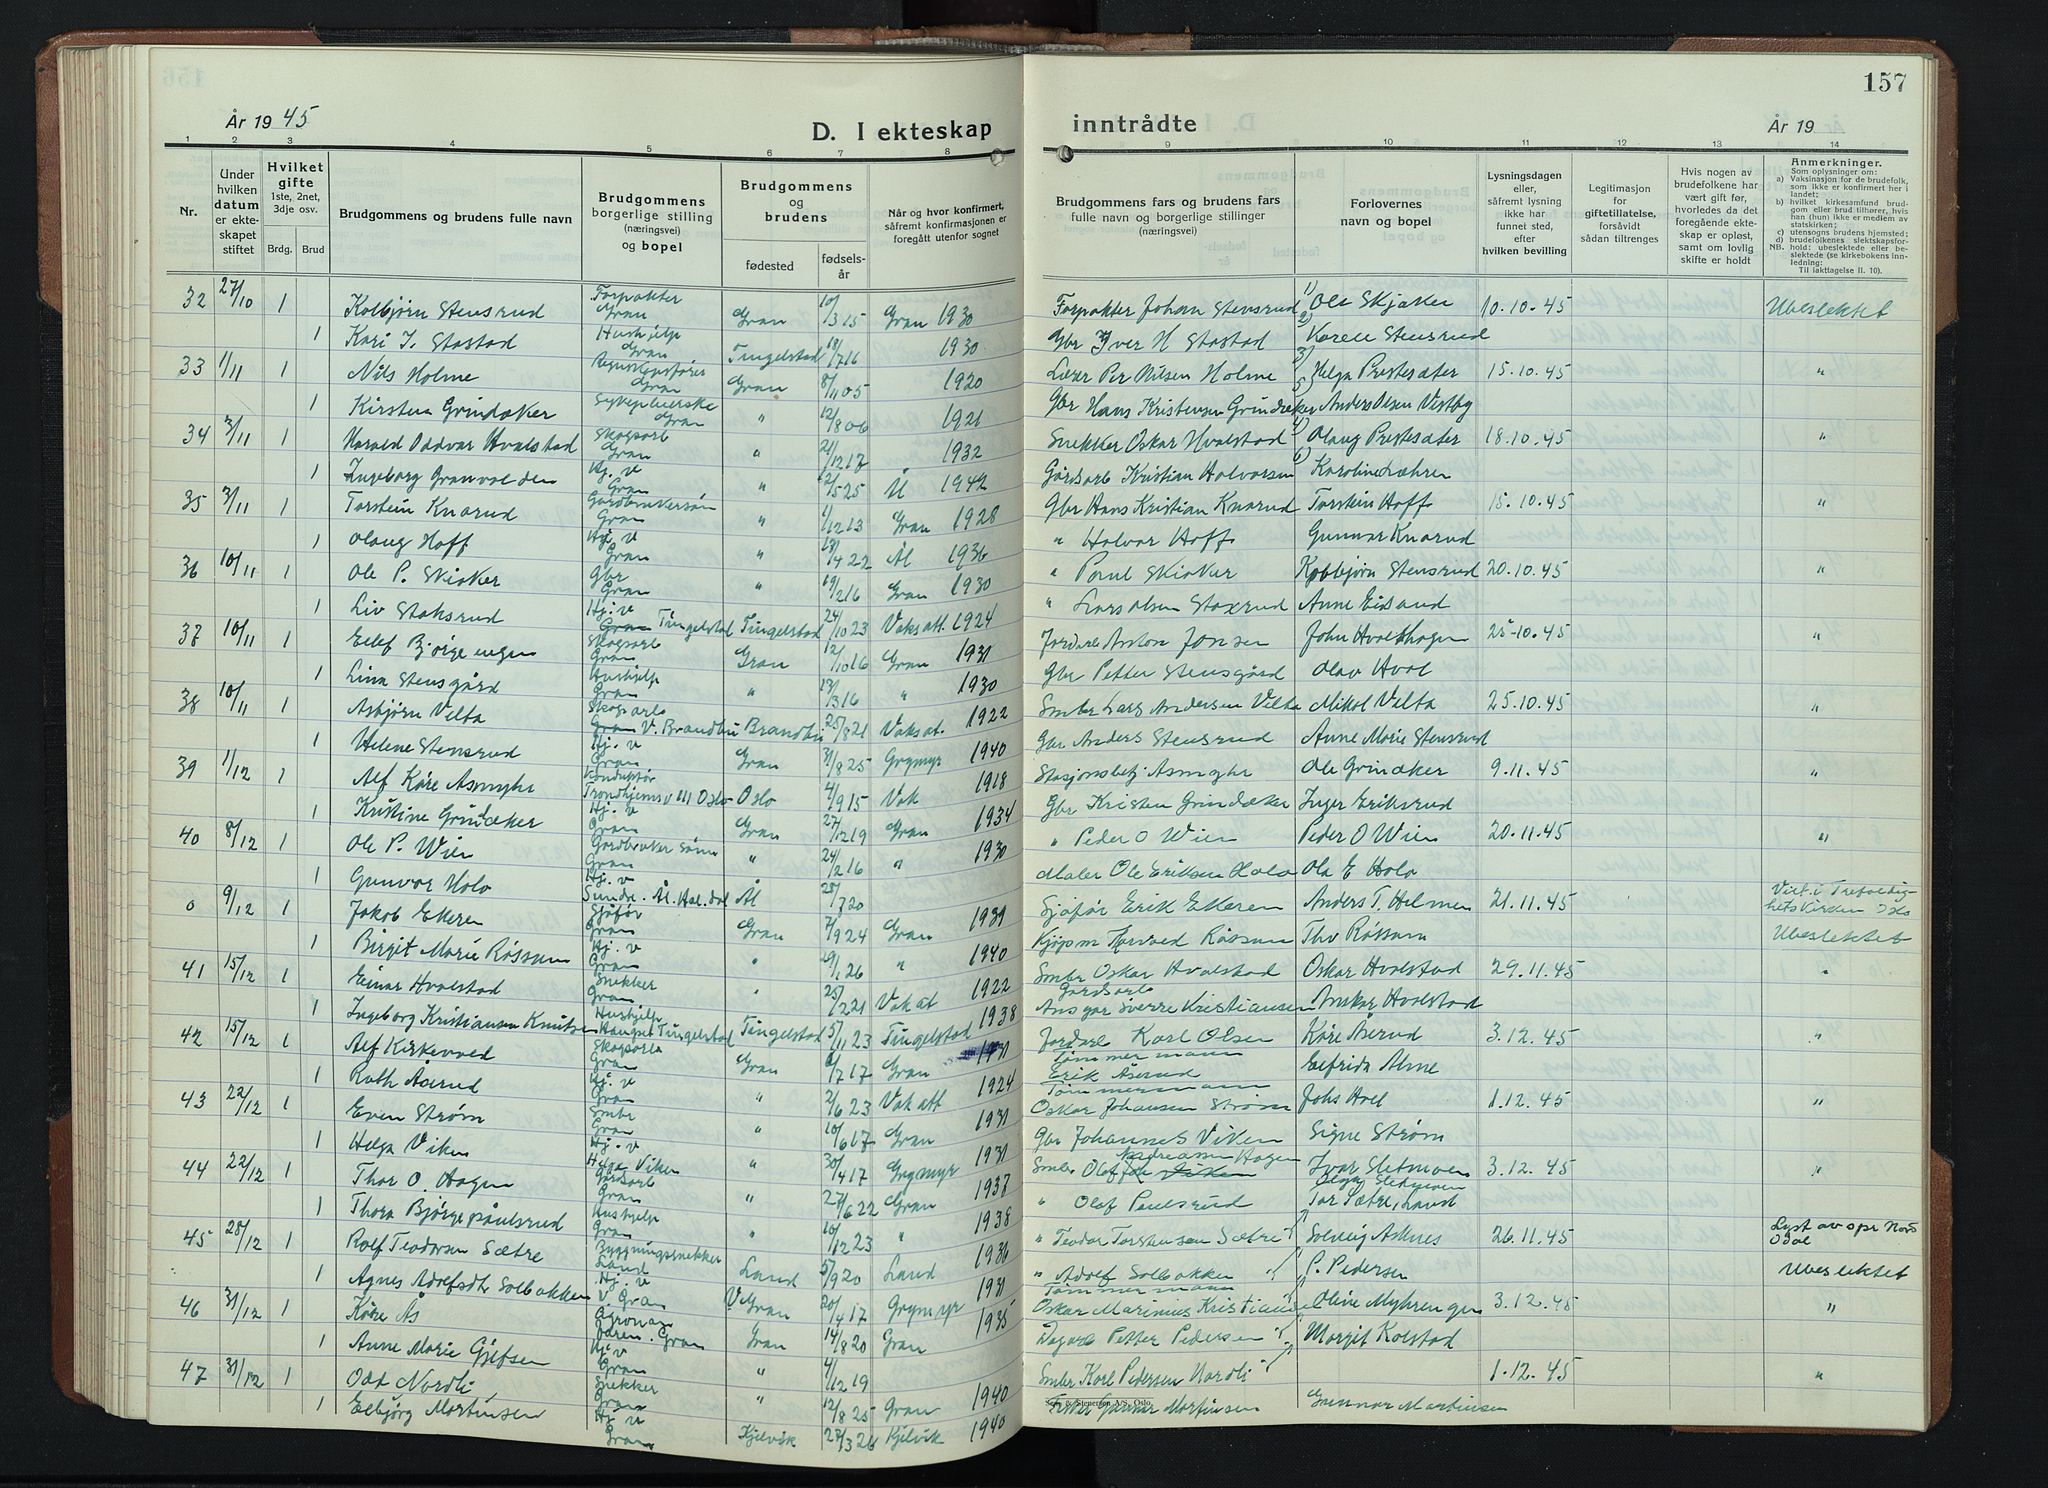 157
År 1945
D. I ekteskap
inntrådte
År 19
1 2 3 4 5 6 7 8 9 10 11 12 13 14
Nr.
Under hvilken datum er ekteskapet stiftet
Hvilket gifte 1ste, 2net, 3dje osv.
Brdg. Brud
Brudgommens og brudens fulle navn
Brudgommens borgerlige stilling (næringsvei) og bopel
Brudgommens og brudens
fødested
fødselsår
Når og hvor konfirmert, såfremt konfirmasjonen er foregått utenfor sognet
Brudgommens fars og brudens fars fulle navn og borgerlige stillinger (næringsvei)
Forlovernes navn og bopel
Lysningsdagen eller, såfremt lysning ikke har funnet sted, efter hvilken bevilling
Legitimasjon for giftetillatelse, forsåvidt sådan tiltrenges
Hvis nogen av brudefolkene har vært gift før, hvorledes da det foregående ekteskap er opløst, samt om lovlig skifte er holdt
Anmerkninger.
Som oplysning om:
a) Vaksinasjon for de brudefolk, som ikke er konfirmert her i landet;
b) hvilket kirkesamfund brudgom eller brud tilhører, hvis han (hun) ikke er medlem av statskirken;
c) utensogns brudens hjemsted;
d) brudefolkenes slektskapsforhold: ubeslektede eller beslektede (se kirkebokens innledning:
NB.
Til iakttagelse II. 10).
32 27/10 1 Kolbjørn Stensrud Forpakter Gran Gran 10/3 15 Gran 1930 Forpakter Johan Stensrud 1) Ole Skjaker 10.10.45 Ubeslektet
1 Kari I. Stastad Hushjelp Gran Tingelstad 18/7 16 1930 Gbr Iver H Stastad 2) Karen Stensrud
33 1/11 1 Nils Holme Gran Gran 8/11 05 1920 Lærer Per Nilsen Holme 3) Helga Prestesæter 15.10.45 "
1 Kirsten Grindaker Sykepleierske Gran " 12/8 06 1921 Gbr Hans Kristensen Grindaker Anders Olsen Vestby
34 3/11 1 Harald Oddvar Hvalstad Skogsarb Gran " 21/12 17 1932 Snekker Oskar Hvalstad Olaug Prestesæter 18.10.45 "
1 Ingeborg Granvolden Hj. v Gran " 12/5 25 Ål 1942 Gårdsarb Kristian Halvorsen Karoline Læhren
35 3/11 1 Torstein Knarud Gardbrukersøn Gran " 1/12 13 Gran 1928 Gbr Hans Kristian Knarud Torstein Hoff 15.10.45 "
1 Olaug Hoff Hj. v Gran " 18/4 22 Ål 1936 " Halvor Hoff Gunnar Knarud
36 10/11 1 Ole P. Skiaker Gbr Gran " 19/2 16 Gran 1930 " Paul Skiaker Kolbjørn Stensrud 20.10.45 "
1 Liv Staksrud Hj. v Gran Tingelstad Tingelstad 24/10 23 Vaks att. 1924 " Lars Olsen Staxrud Anne Eidsand
37 10/11 1 Eilef Bjørgeengen Skogsarb Gran Gran 12/10 16 Gran 1931 Jordarb Anton Jonsen John Hvalshagen 25.10.45 "
1 Lina Stensgård Hushjelp Gran " 13/3 16 " 1930 Gbr Petter Stensgård Olav Hval
38 10/11 1 Asbjørn Velta Skogsarb Gran V. Brandbu Brandbu 25/8 21 Vaks at. 1922 Smbr Lars Andersen Velta Mikal Velta 25.10.45 "
1 Helene Stensrud Hj. v Gran Gran 31/8 25 Grymyr 1940 Gbr Anders Stensrud Anne Marie Stensrud
39 1/12 1 Alf Kåre Asmyhr Konduktør Trondhjemsv 111 Oslo Oslo 4/9 15 Vak 1918 Stasjonsbetj Asmyhr Ole Grindaker 9.11.45 "
1 Kristine Grindaker Hj. v Gran Gran 27/12 19 Gran 1934 Gbr Kristen Grindaker Inger Eriksrud
40 8/12 1 Ole P. Wien Gardbruker sønn Gran " 24/2 16 " 1930 " Peder O Wien Peder O Wien 20.11.45 "
1 Gunvor Holo Hj. v Ål 28/7 20 Maler Ole Eriksen Holo Ola E Holo
0 9/12 1 Jakob Ekeren Sundr. Ål. Hal.dal Sjåfør Gran Gran 7/9 24 Gran 1939 Sjåfør Erik Ekeren Anders T. Helmen 21.11.45 Viet i Trefoldighetskirken Oslo
1 Birgit Marie Røssum Hj. v Gran " 19/1 26 " 1940 Kjøpm Harald Røssum Thv Røssum Ubeslektet
41 15/12 1 Einar Hvalstad Snekker Gran " 25/2 21 Vak at 1922 Smbr Oskar Hvalstad Oskar Hvalstad 29.11.45 "
1 Ingeborg Kristiansen Knutsen Hushjelp Haugst Tingelstad Tingelstad 5/11 23 Tingelstad 1938 Gårdsarb Ansgar Sverre Kristiansen Anskar Hvalstad
42 15/12 1 Alf Kirkevold Skogsarb Gran Gran /7 17 Gran 1931 Jordarb Karl Olsen Kåre Åserud 3.12.45 "
1 Ruth Åserud Hj. v Gran " 2/6 23 Vak att 1924 Tømmermann Erik Åserud Elfrida Alme
43 22/12 1 Even Strøm Smbr Gran " 10/6 17 Gran 1931 Tømmermann Oskar Johansen Strøm Johs Hvel 1.12.45 "
1 Helga Viken Hj. v Helga Viken " 30/4 17 Grymyr 1931 Gbr Johannes Viken Signe Strøm
44 22/12 1 Thor O. Hagen Gårdsarb Gran " 27/6 22 Gran 1937 Smbr Olaf Andreassen Hagen Ivar Sletmoen 3.12.45 "
1 Thora Bjørge Paulsrud Hushjelp Gran " 10/12 23 " 1938 " Olaf Paulsrud Olga Sletmoen Tor Sætre, Land
45 28/12 1 Rolf Teodorsen Sætre Byggningssnekker Land Land 5/9 20 Land 1936 " Teodor Torstensen Sætre Solveig Asknes 26.11.45 Lyst av spr Nord Odal
1 Agnes Adolfsdtr Solbakken Hj. v V. Gran V Gran 20/4 17 Grymyr 1931 " Adolf Solbakken P. Pedersen Ubeslektet
46 31/12 1 Kåre Ås Agronom Gran Gran 14/8 20 Gran 1935 Tømmermann Oskar Marinius Kristiansen Oline Myhrengen 3.12.45 "
1 Anne Marie Gjefsen Hj. v Gran " 4/12 19 Dagarb Petter Pedersen Margit Kolstad
47 31/12 1 Odd Nordli Snekker Gran " 12/8 25 Gran 1940 Smbr Karl Pedersen Nordli 1.12.45 "
1 Eelbjørg Martinsen Hj v Gran Kjelvik 27/3 26 Kjelvik 1940 Gunnar Martinsen Gunnar Martinsen
Sem & Stenersen A/S, Oslo.